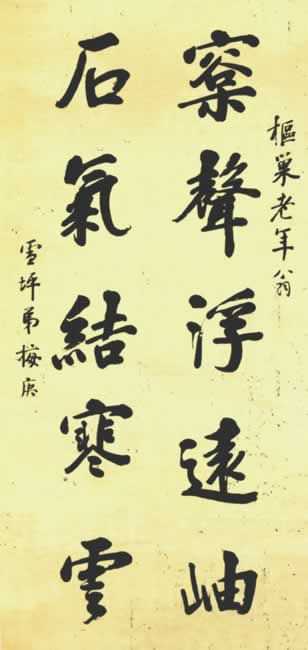 樞巢老年翁
聲浮遠岫
石氣結寒雲
雪坪弟梅庚